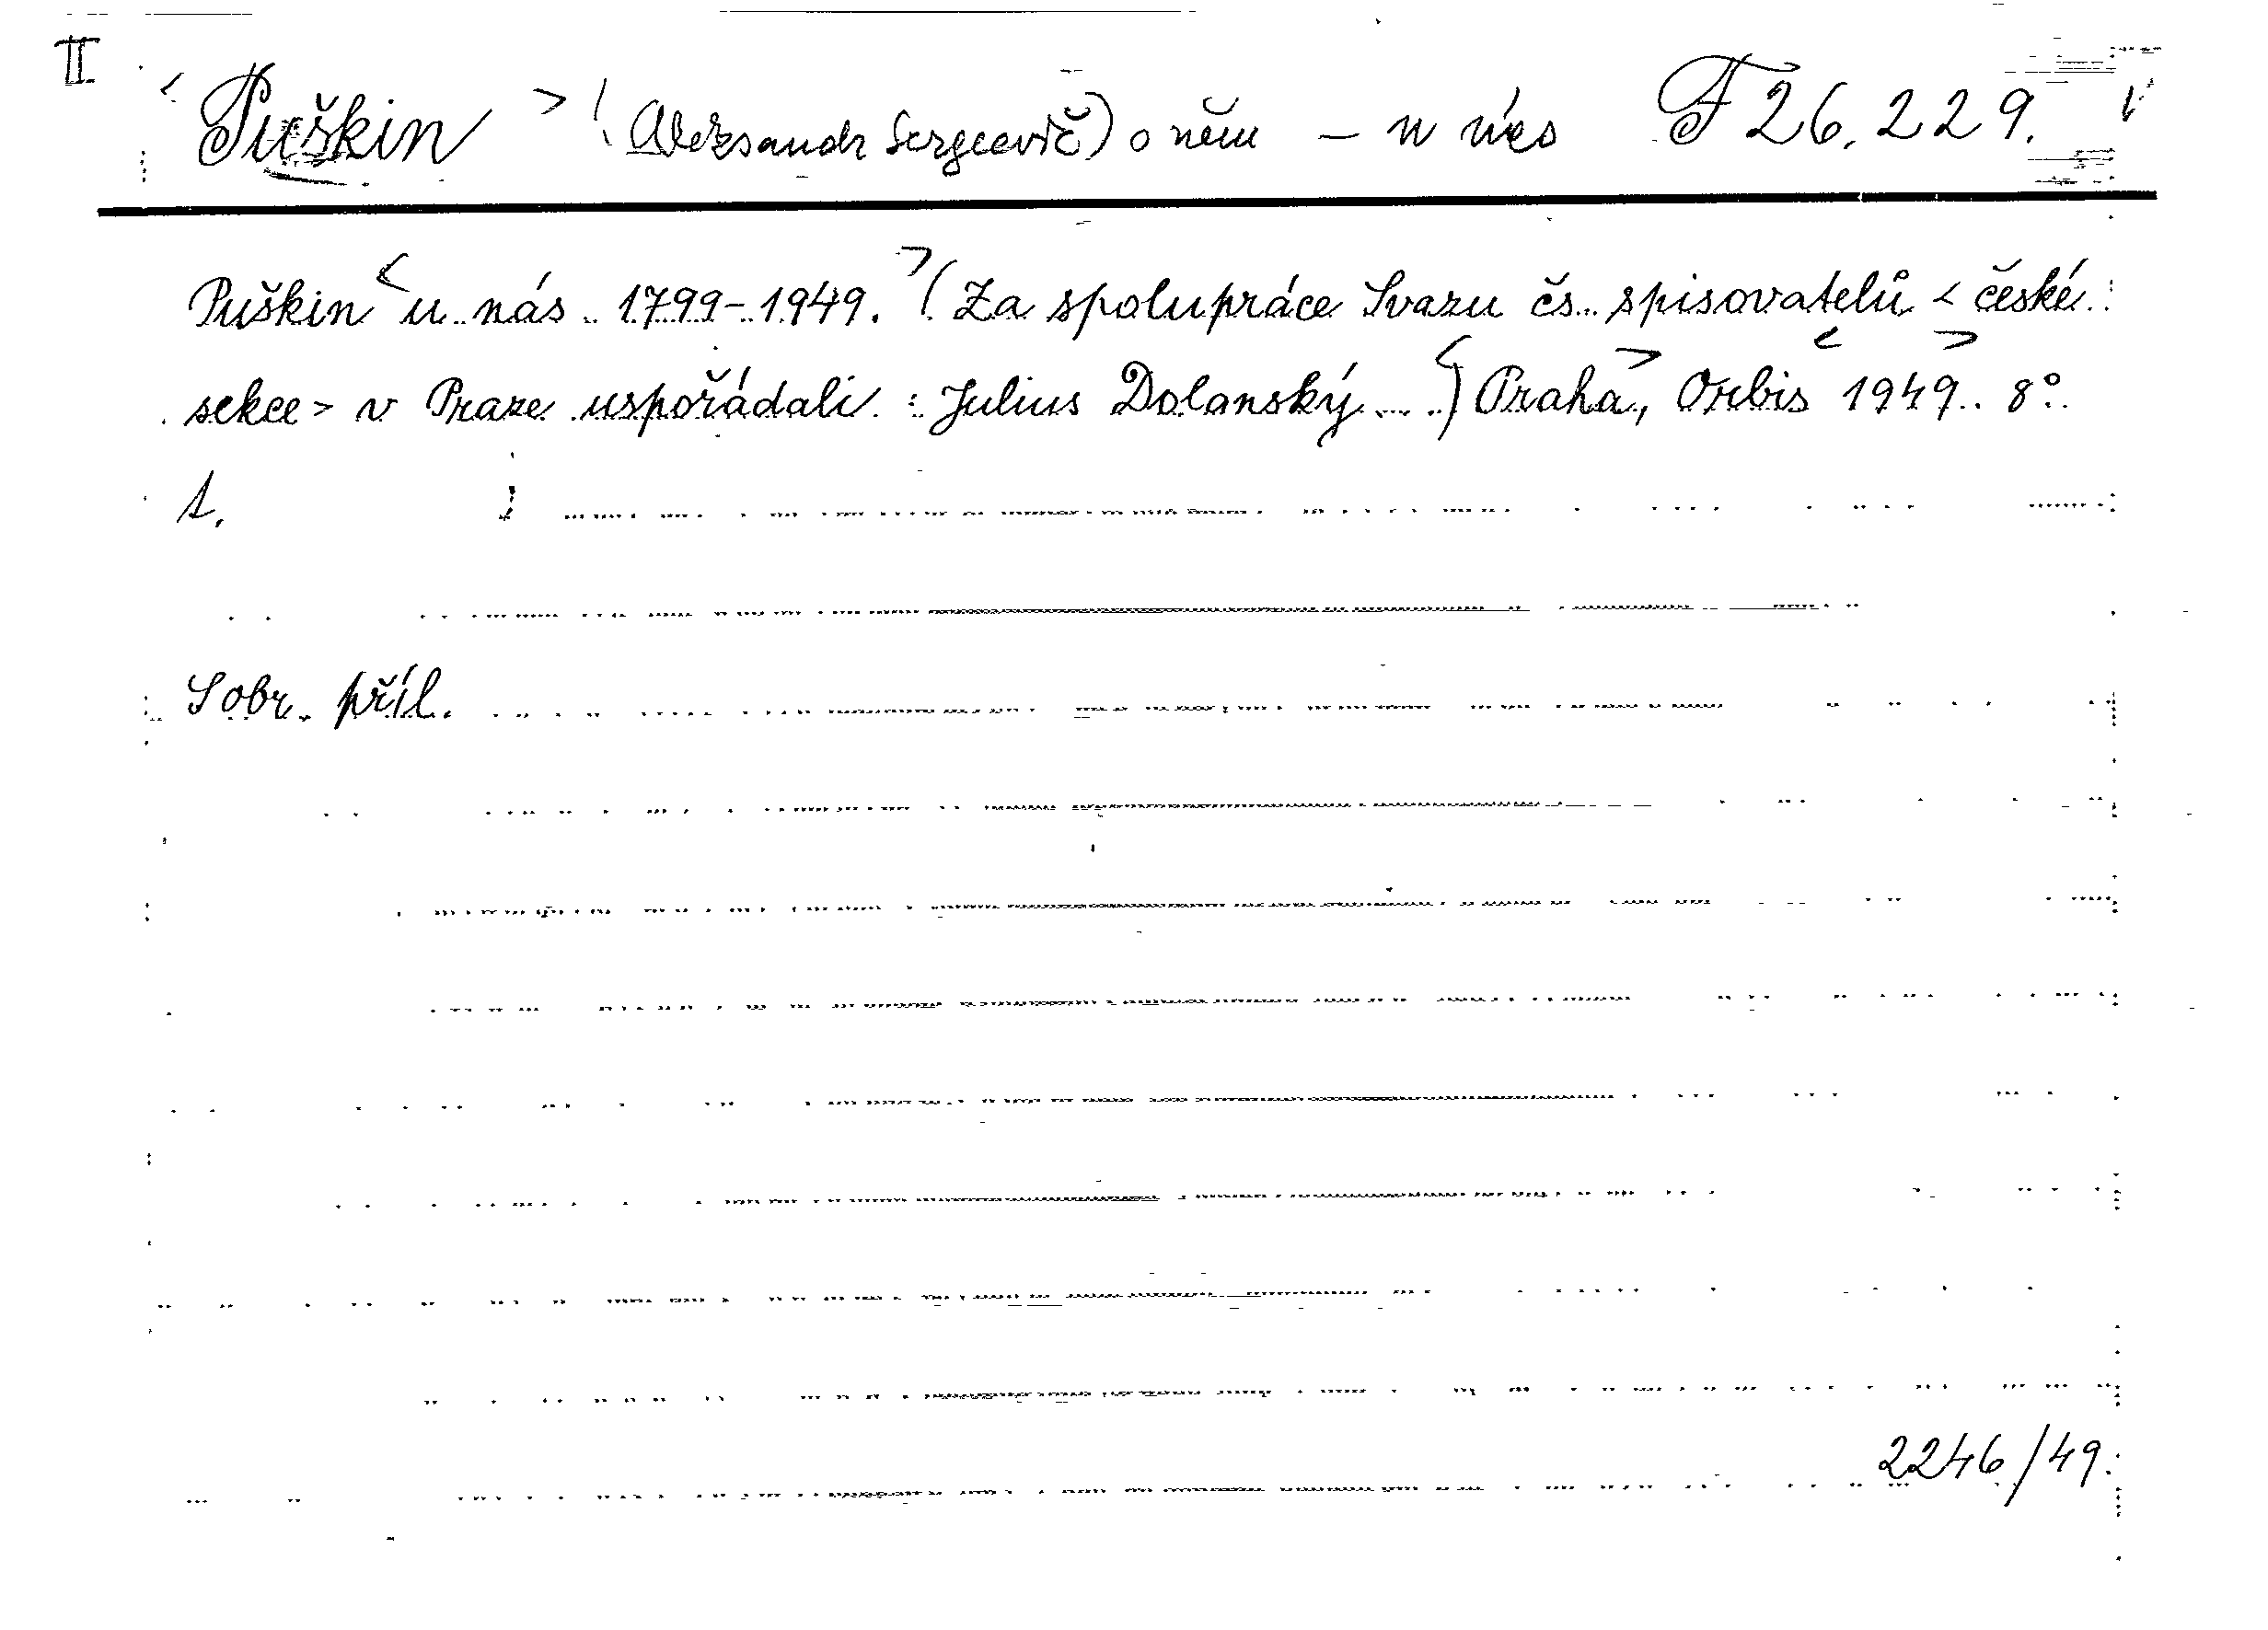 II
< Puškin > (Aleksandr Sergeevič) o něm – u nás F 26.229.
Puškin < u nás 1799-1949. > ( Za spolupráce Svazu čs. spisovatelů < české
sekce > v Praze uspořádali : Julius Dolanský ... ) < Praha >, < Orbis > 1949. 8°.
1.
S obr. příl.
2246/49.